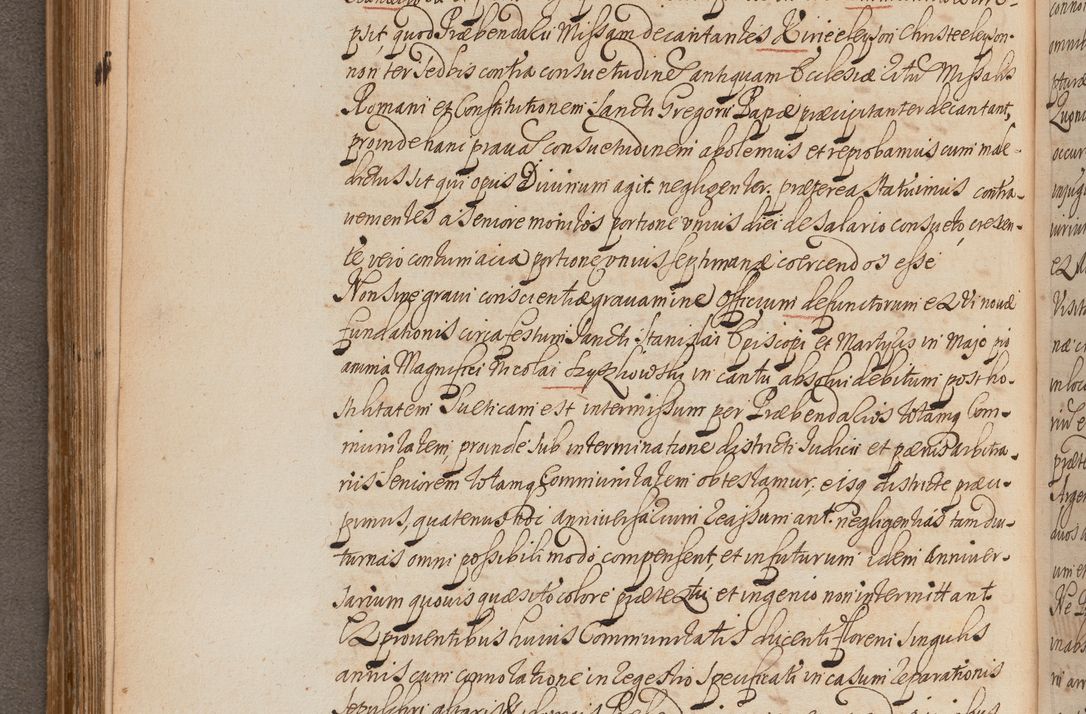 psit, quod Præbendarii Missam decantantes Kirieeleyson Christeeleyson
non ter sed bis contra consuetudinem antiquam Ecclesiæ ritum Missalis
Romani et Constitutionem Sancti Gregorii Papæ præcipitanter decantant,
proinde hanc pravam consuetudinem abolemus et reprobamus cum male-
dictus sit qui opus Divinum agit negligenter. præterea statuimus contra-
venientes a Seniore monitos portione unius diei de Salario consueto, crescen-
te vero contumacia portione unius septimanæ coercendos esse
Non sine gravi conscientiæ gravamine Officium defunctorum ex Vi novæ
fundationis circa festum Sancti Stanislai Episcopi et Martyris in Majo pro
anima Magnifici Nicolai in cantu absolvi debitum post ho-
stilitatem Sueticam est intermissum per Præbendarios totamq Com-
munitatem, proinde sub interminatione districti Iudicii et pænis arbitra-
riis Seniorem totamq Communitatem obtestamur, eisq districte præci-
pimus, quatenus hoc anniversarium reassumant, negligentias tam diu-
turnas omni possibili modo compensent, et in futurum idem Anniver-
sarium quovis quæsito colore prætextu et ingenio non intermittant
Ex proventibus huius Communitatis ducenti floreni singulis
annis cum connotatione in regestro specificati in casum reparationis